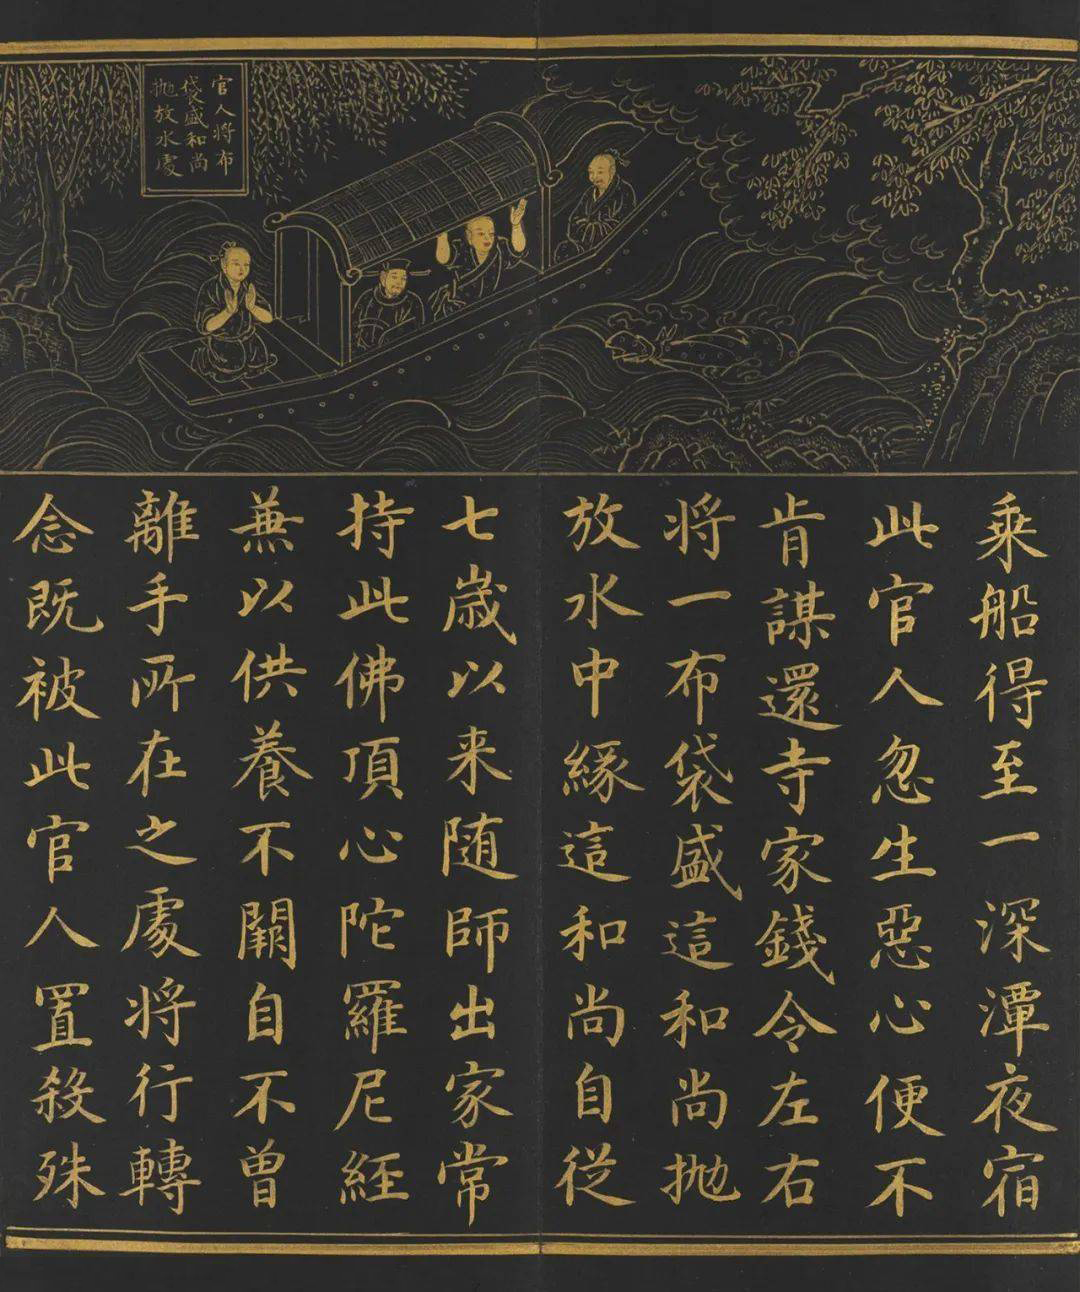 官人将布
袋盛和尚
抛放水處
乘船得至一深潭夜宿
此官人忽生惡心便不
肯謀還寺家錢令左右
将一布袋盛這和尚抛
放水中緣這和尚自従
七歳以来随師出家常
持此佛頂心陀羅尼経
兼以供養不闕自不曽
離手所在之處将行轉
念既被此官人置殺殊